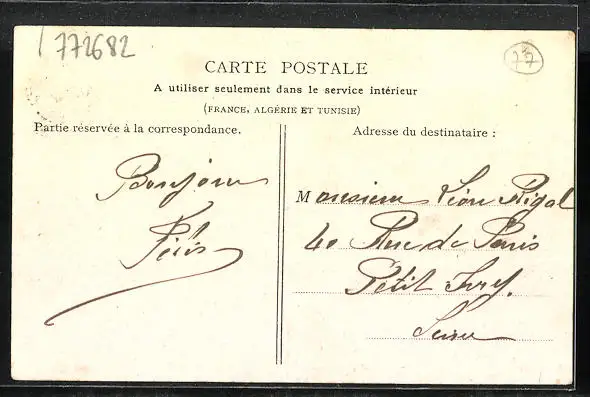 772682
77
CARTE POSTALE
A utiliser seulement dans le service intérieur
(FRANCE, ALGÉRIE ET TUNISIE)
Partie réservée à la correspondance.
Adresse du destinataire :
Bonjour
Monsieur Léon Rigal
40 Rue de Paris
Petit Ivry.
Seine